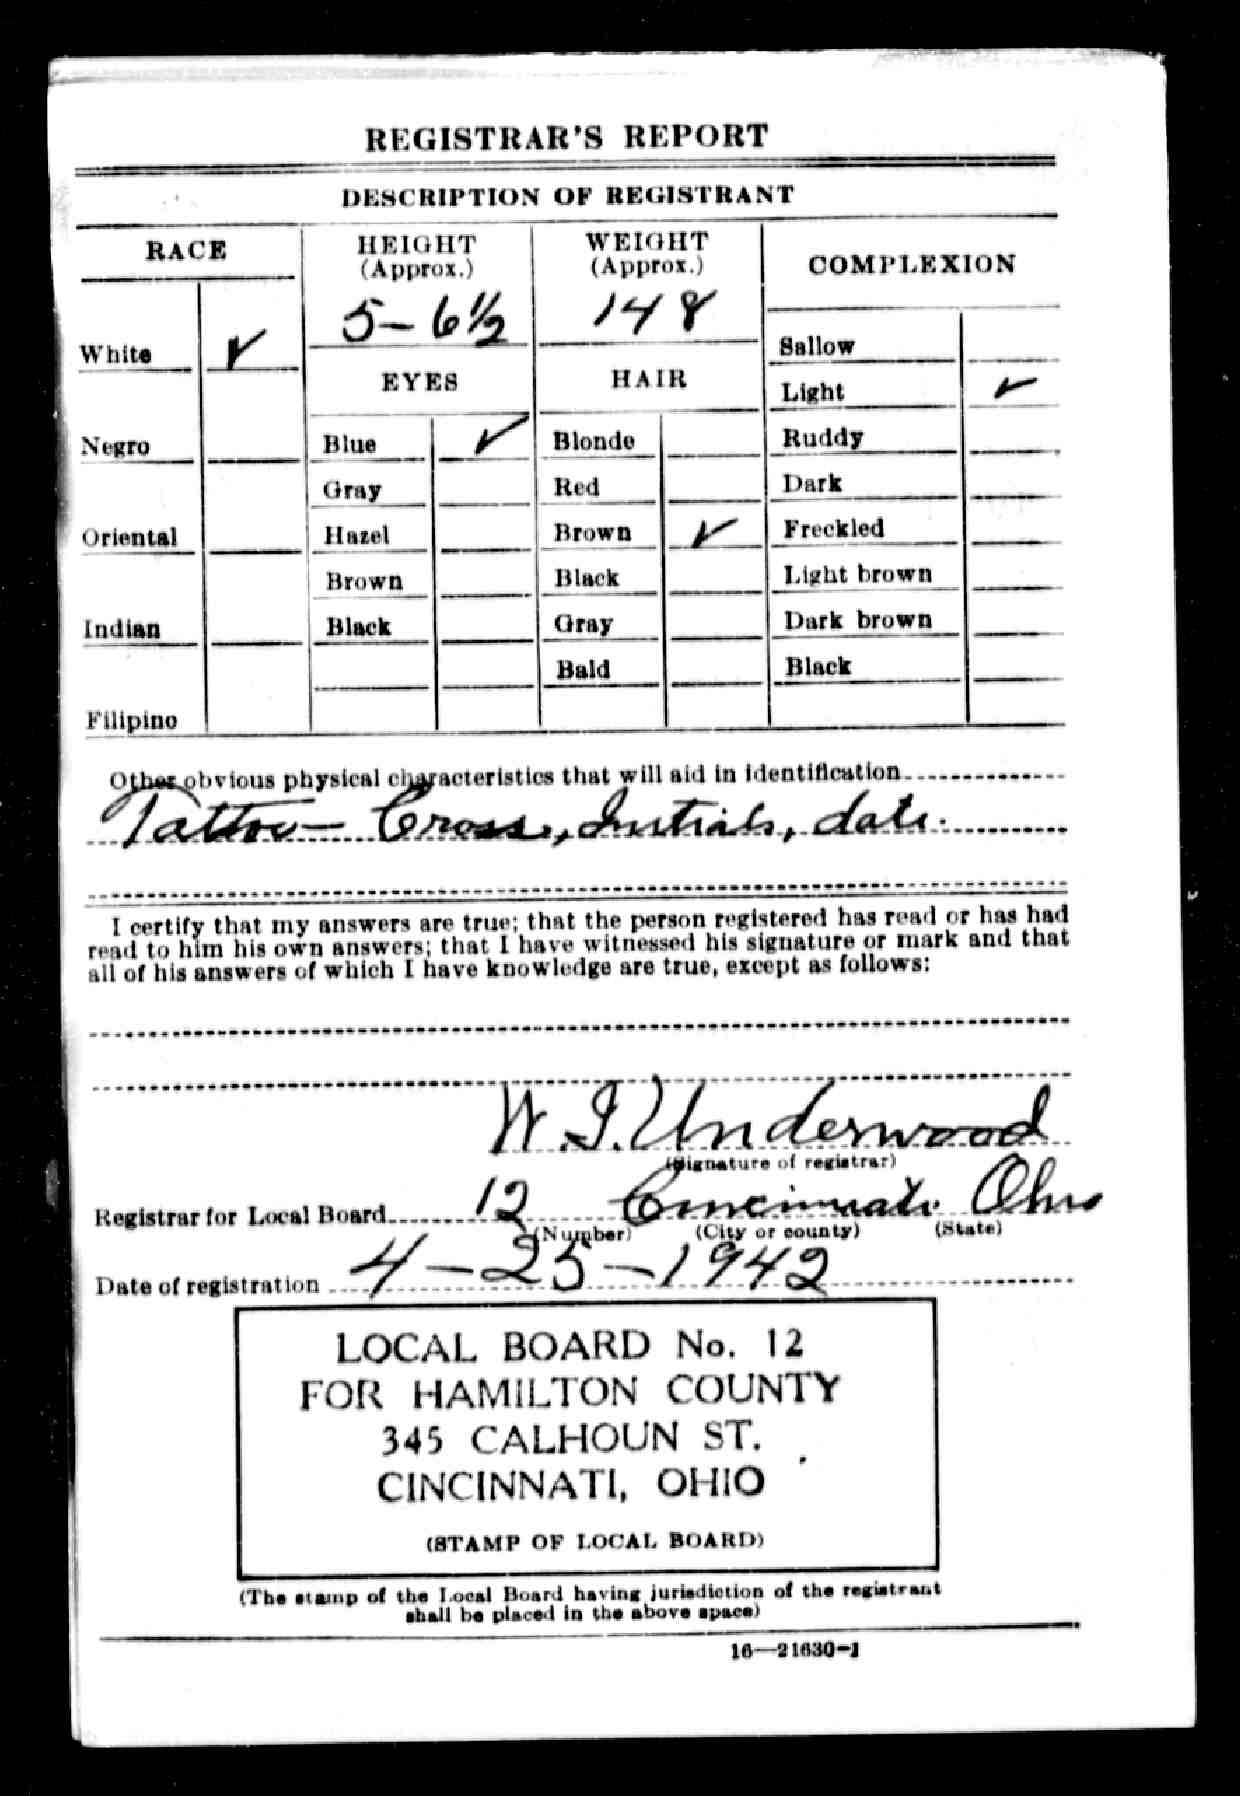 REGISTRAR'S REPORT
DESCRIPTION OF REGISTRANT
RACE
HEIGHT
(Approx.)
WEIGHT
(Approx.)
COMPLEXION
5-6½
148
White ✓
Sallow
EYES
HAIR
Light ✓
Negro
Blue ✓
Blonde
Ruddy
Gray
Red
Dark
Oriental
Hazel
Brown ✓
Freckled
Brown
Black
Light brown
Indian
Black
Gray
Dark brown
Bald
Black
Filipino
Other obvious physical characteristics that will aid in identification
Tattoo - Cross, Initials, date.
I certify that my answers are true; that the person registered has read or has had
read to him his own answers; that I have witnessed his signature or mark and that
all of his answers of which I have knowledge are true, except as follows:
W. I. Underwood
(Signature of registrar)
Registrar for Local Board 12 Cincinnati Ohio
(Number) (City or county) (State)
Date of registration 4-25-1942
LOCAL BOARD No. 12
FOR HAMILTON COUNTY
345 CALHOUN ST.
CINCINNATI, OHIO
(STAMP OF LOCAL BOARD)
(The stamp of the Local Board having jurisdiction of the registrant
shall be placed in the above space)
16—21630-1